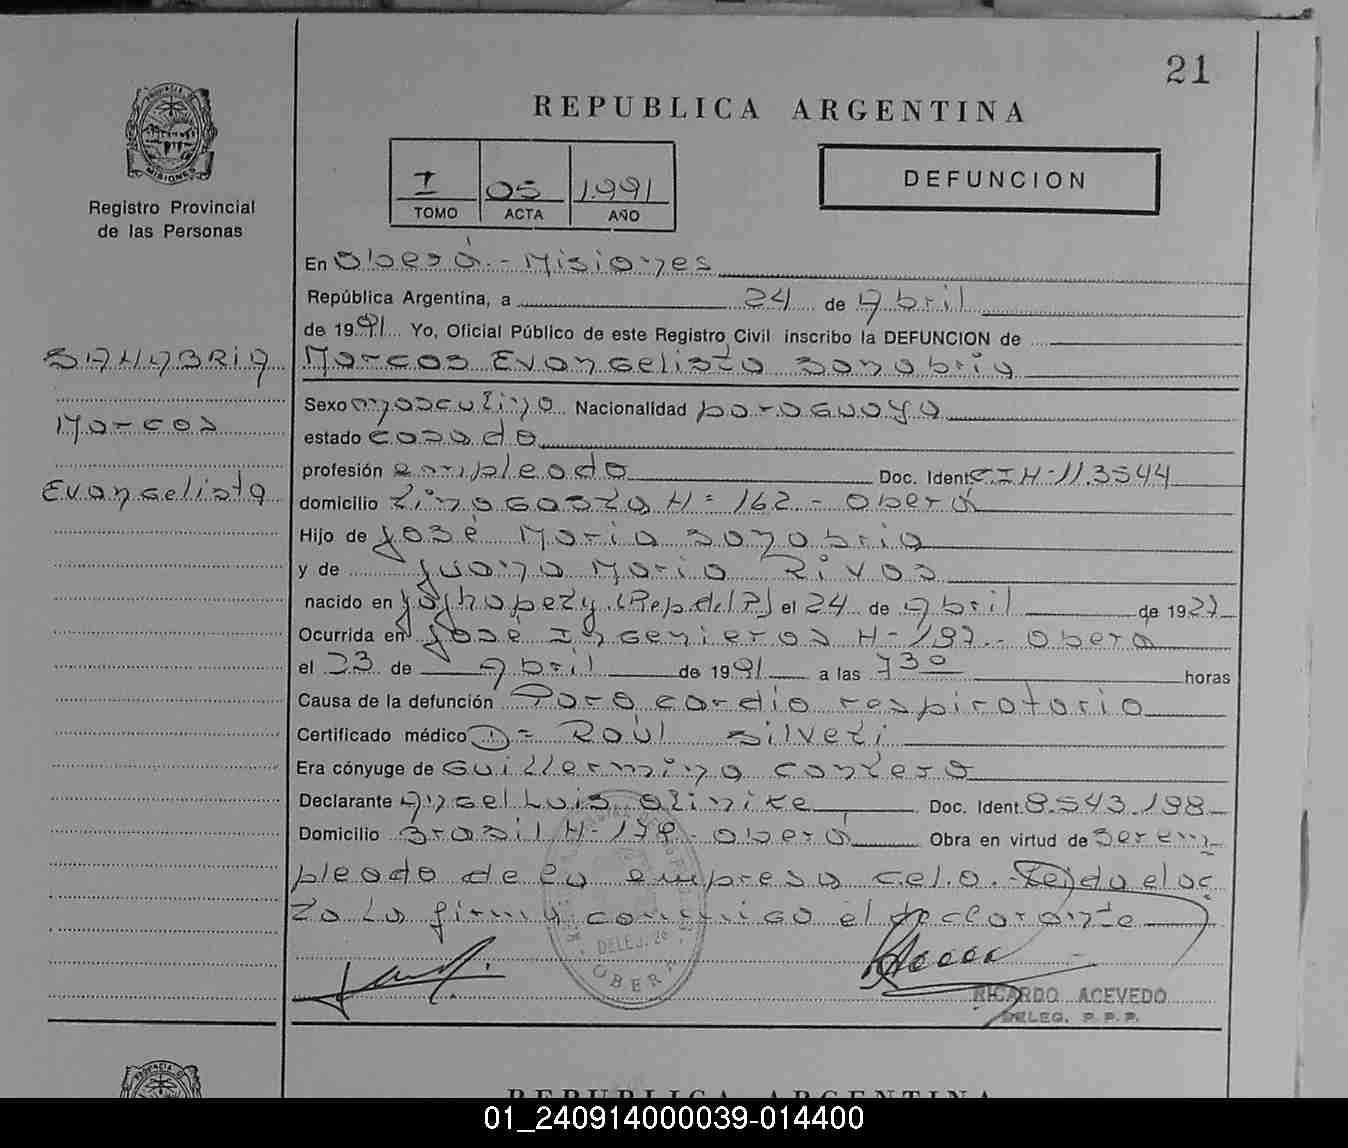 21
REPUBLICA ARGENTINA
PROVINCIA DE
MISIONES
Registro Provincial
de las Personas
I 05 1991
TOMO ACTA AÑO
DEFUNCION
En Oberá - Misiones
República Argentina, a 24 de Abril
de 1991 Yo, Oficial Público de este Registro Civil inscribo la DEFUNCION de
SANABRIA
Marcos Evangelista Sanabria
Sexo masculino Nacionalidad paraguaya
Marcos
estado casado
profesión empleado Doc. Ident. C.I.Nº 113544
Evangelista
domicilio Nº 162 - Oberá
Hijo de José Maria Sanabria
y de Juana Maria Rivas
nacido en (Rep. del P) el 24 de Abril de 1927
Ocurrida en José Ingenieros Nº 197 - Oberá
el 23 de Abril de 1991 a las 7 30 horas
Causa de la defunción Paro cardio respiratorio
Certificado médico Dr Raúl Silveti
Era cónyuge de Guillermina
Declarante Angel Luis Doc. Ident. 8.543.198
Domicilio Brasil Nº 179 - Oberá Obra en virtud de ser em
pleado de la empresa C.E.L.O. Leida el ac
ta la firma conmigo el declarante
OBERA
RICARDO ACEVEDO
DELEG. P.P.P.
PROVINCIA DE
REPUBLICA ARGENTINA
01_240914000039-014400